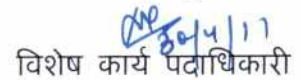 30/4/11
विशेष कार्य पदाधिकारी